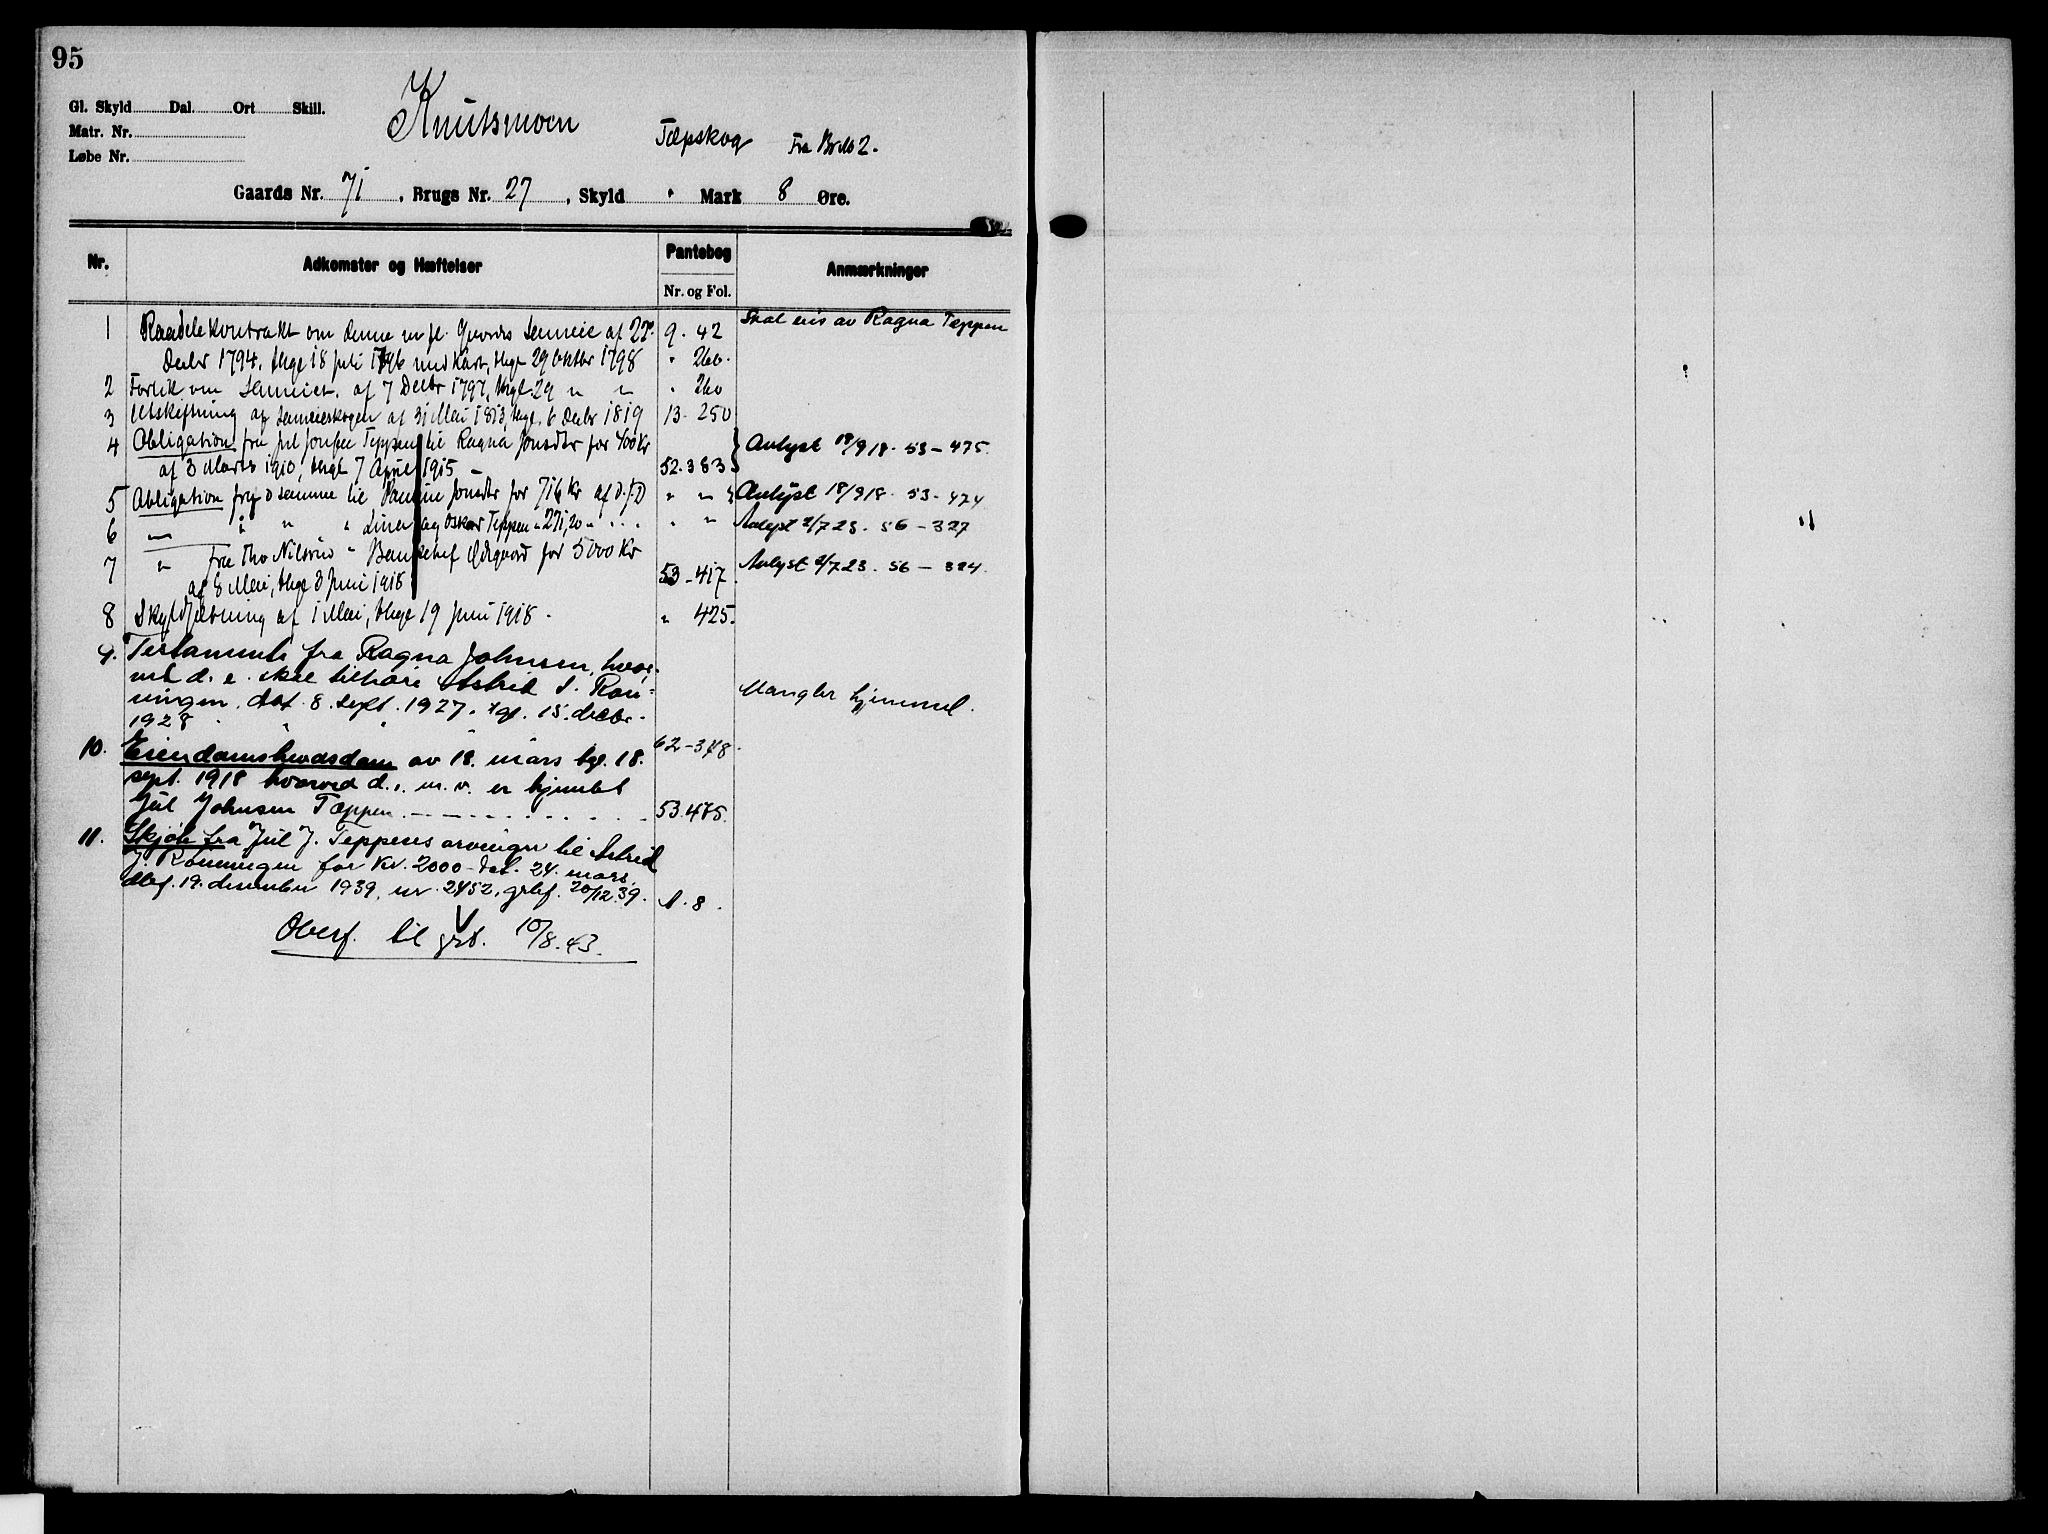 95
Gl. Skyld Dal. Ort Skill.
Matr. Nr.
Løbe Nr.
Knutsmoen Tæpskog Fra Br № 2.
Gaards Nr. 71, Brugs Nr. 27, Skyld " Mark 8 Øre.
Nr. Adkomster og Hæftelser Pantebog Nr. og Fol. Anmærkninger
1 kontrakt om denne m fl. Gaardes Senneie af 22 9. 42 Skal eies av Ragna Tæppen
Decbr 1794, thgl 18 juli 1796 med Kart, thgl 29 Oktbr 1798 " 260.
2 Forlik om Senneiet. af 7 Decbr 1797, thgl. 29 " " " 260
3 Utskiftning af Senneieskogen af 31 Mai 1813, thgl. 6 Decbr 1819 13. 250
4 Obligation fra Jul Jonsen Teppen til Ragna Jonsdtr for 400 Kr
af 3 Marts 1910, thgl 7 April 1915 52. 383 Avlyst 18/9 18. 53 – 475.
5 Obligation fra d samme til Jonsdtr for 716 Kr af D. J. D " " Avlyst 18/9 18. 53 – 474
6 " " " " og Oskar Teppen " 271,20 " . . . " " Avlyst 2/7 23. 56 – 327
7 " fra Tho Nilsrud " Ødegaard for 5000 Kr
af 8 Mai, thgl 3 Juni 1918 53 – 417. Avlyst 2/7 23. 56 – 324.
8 Skyldjeltning af 1 Mai, thgl 19 Juni 1918. " 425.
9. Testamente fra Ragna Johnsen, hvor-
ved d. e. skal tilhøre Astrid J. Røn-
ningen. dat. 8. sept. 1927. tgl. 15. decbr. Mangler hjemmel.
1928 " " "
10. Eiendomshævdsdom av 18. mars tgl. 18. 62 – 348.
sept. 1918 hvorved d. e. m. v. er hjemlet
Jul Johnsen Tæppen. 53. 475.
11. Skjøte fra Jul J. Teppens arvinger til Astrid
J. Rønningen for kr. 2000 – dat. 24. mars,
dbf. 19. desember 1939, nr. 2452, grbf. 20/12.39. A. 8.
Overf. til grb. 10/8. 43.